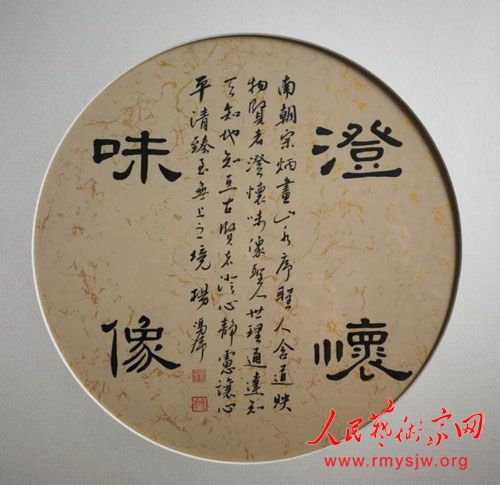 澄懷
味像
南朝宗炳畫山水序聖人含道映
物賢者澄懷味像聖人世理通達知
天知地知亙古賢者澄心靜慮讓心
平清臻至無上之境 楊
人民藝術家网
www.rmysjw.org